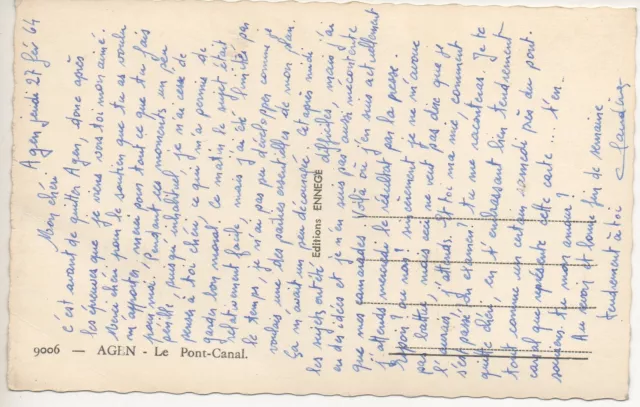 Agen jeudi 27 fév 64
Mon chéri
C'est avant de quitter Agen, donc après
les épreuves que je viens vers toi mon aimé.
Merci chéri pour le soutien que tu as voulu
m'apporter, merci pour tout ce que tu fais
pour moi. Pendant ces moments un peu
pénible puisqu'inhabituel je n'ai cessé de
penser à toi chéri, ce qui m'a permis de
garder bon moral. Ce matin le sujet était
relativement facile mais j'ai été limitée par
le temps, je n'ai pas pu développer comme je
voulais une des parties essentielles de mon plan.
Ça m'avait un peu découragée. Cet après midi
les sujets ont été difficiles, mais j'ai
eu des idées et je n'en suis pas aussi mécontente
que mes camarades. Voilà où j'en suis actuellement
J'attends mercredi le résultat par la presse.
Répon? ou non? sincèrement je ne m'avoue
pas battue, mais ceci ne veut pas dire que je
l'aurais, j'attends. Et toi ma mé, comment
s'est passé l'examen? Tu me raconteras. Je te
quitte chéri, en t'embrassant bien tendrement
tout comme un certain samedi près du pont
canal que représente cette carte... t'en
souviens-tu mon amour?
Au revoir et bonne fin de semaine
tendrement à toi
Editions ENNEGE
9006 — AGEN - Le Pont-Canal.